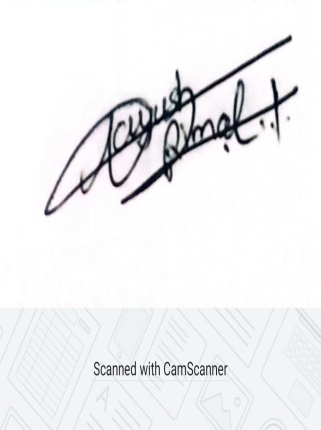 Aayush
Scanned with CamScanner